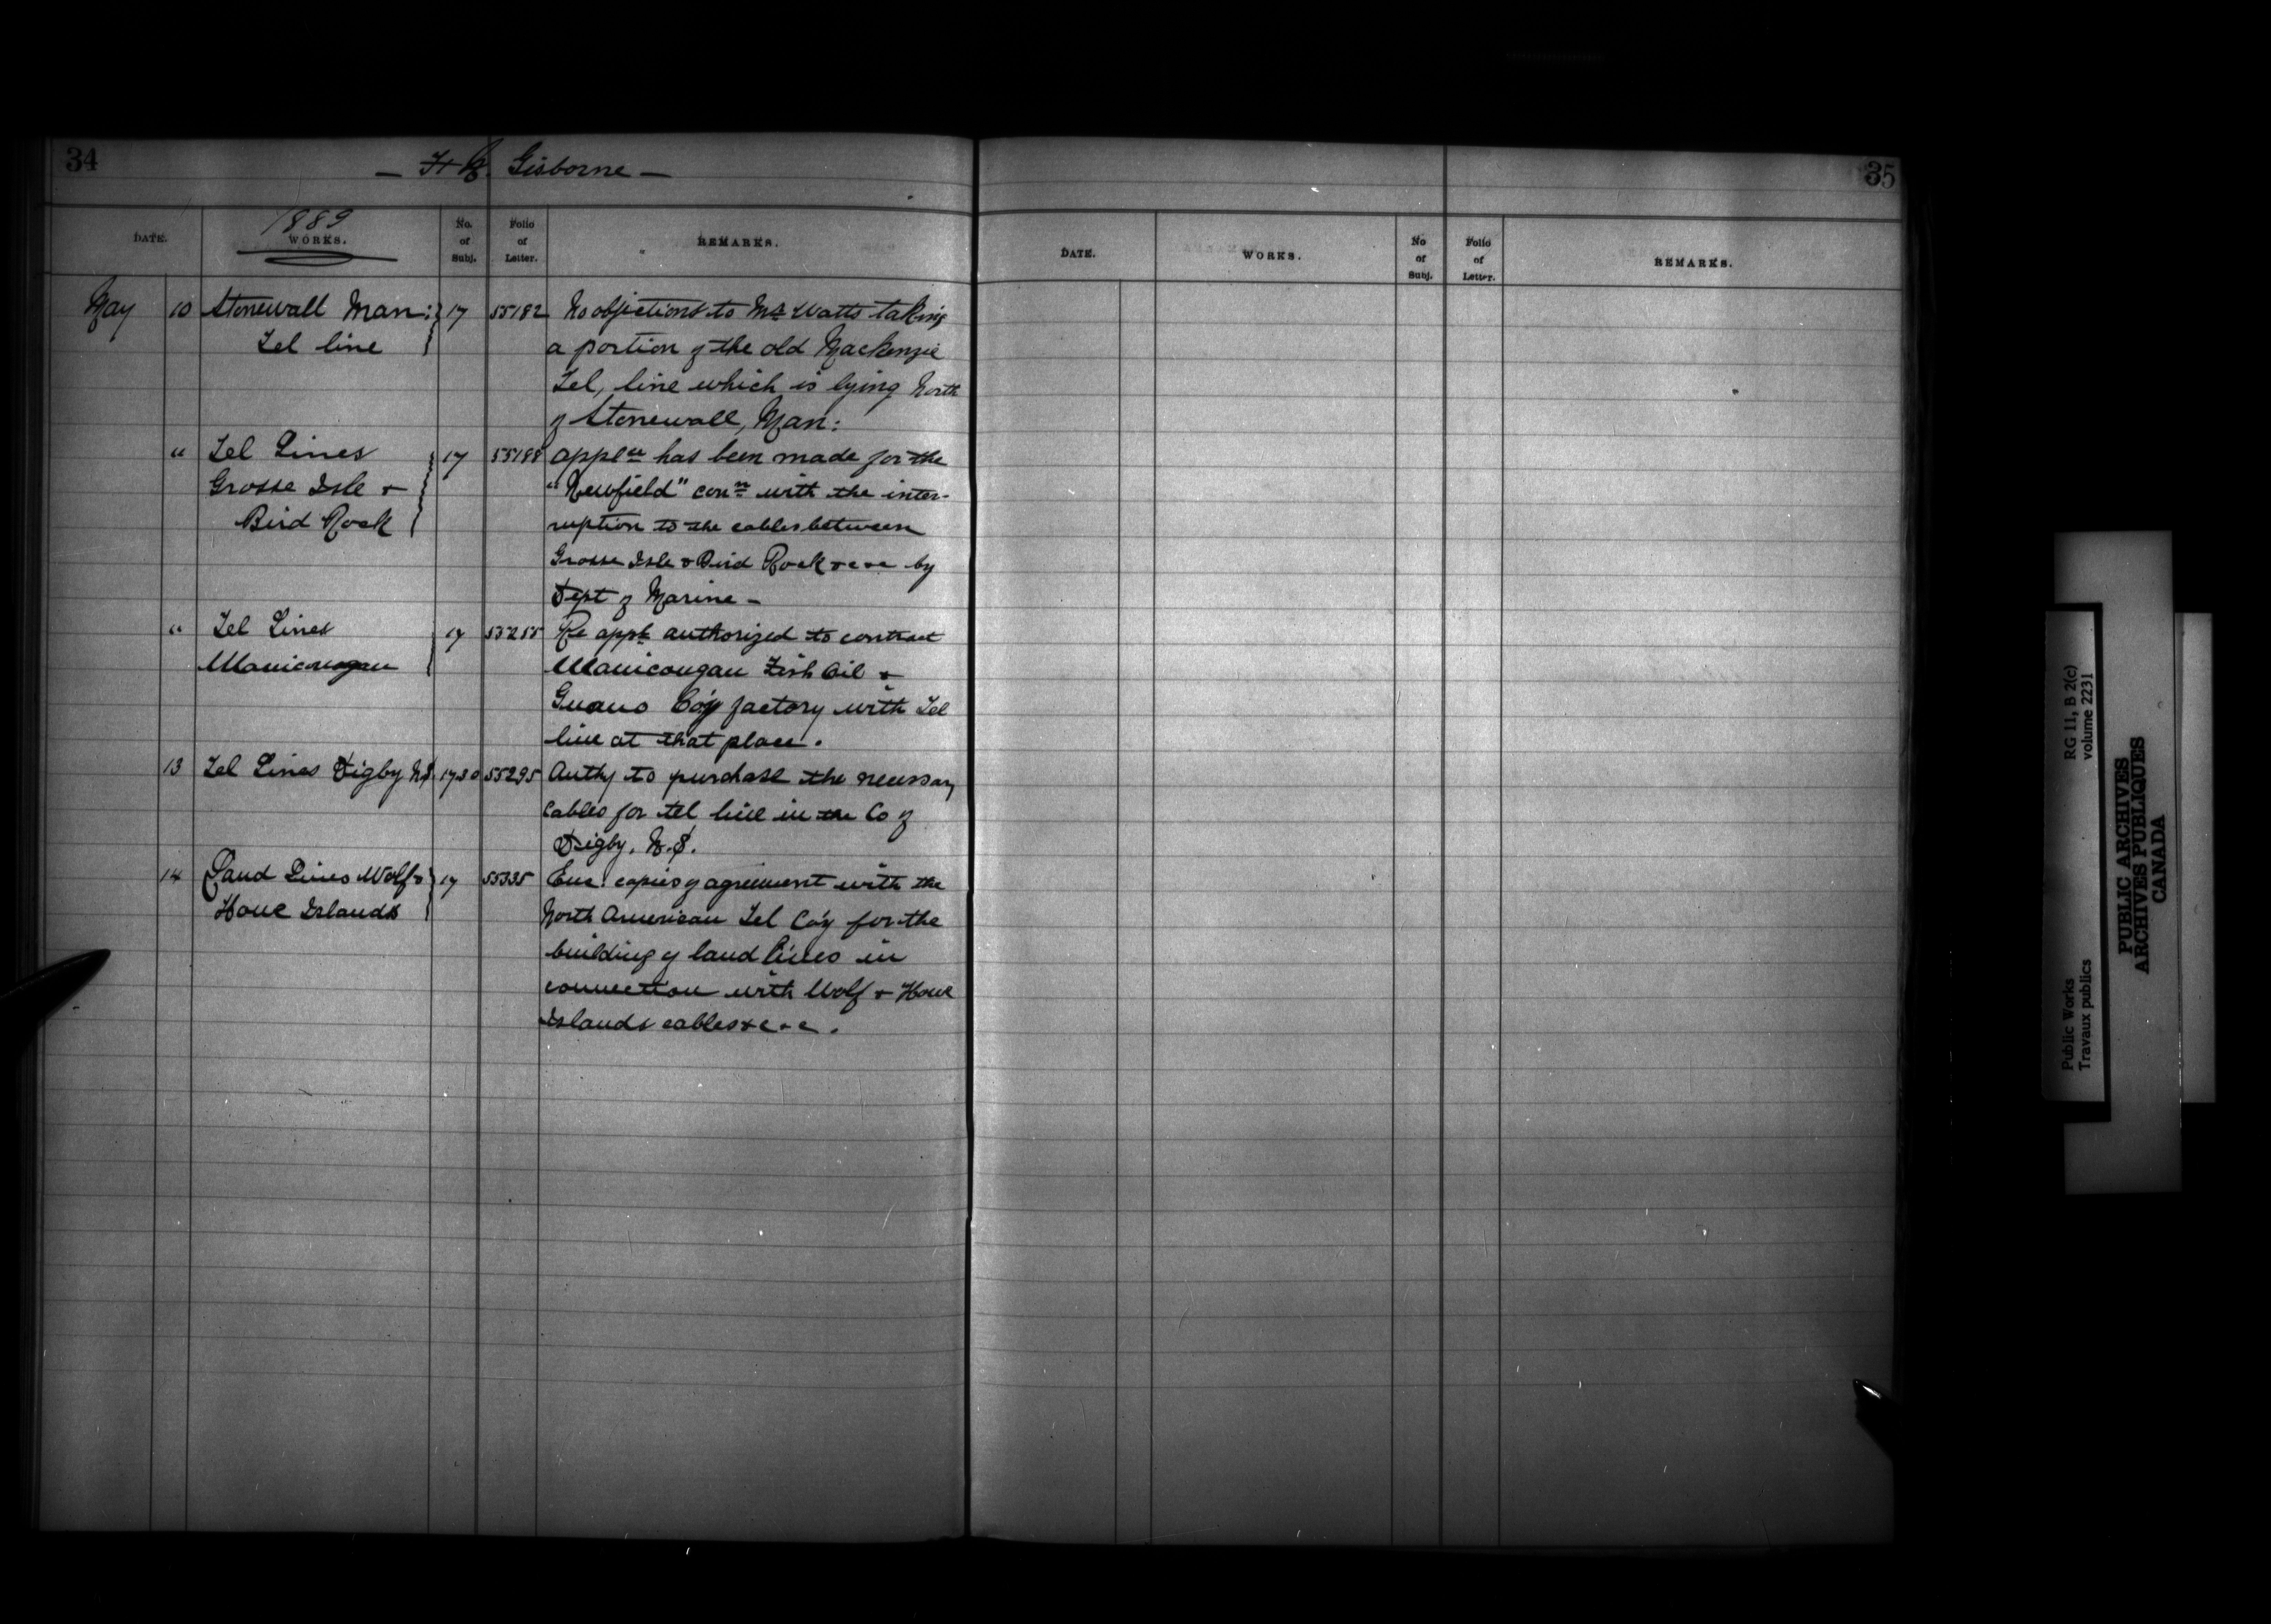 34
— F. N. Gisborne —
1889
DATE.
WORKS.
No. of Subj.
Folio of Letter.
REMARKS.
May 10 Stonewall Man: 17 55182 No objections to Mr Watts taking
Tel line a portion of the old Mackenzie
Tel, line which is lying North
of Stonewall, Man:
" Tel Lines 17 55188 applcn has been made for the
Grosse Isle & "Newfield" conn with the inter-
Bird Rock ruption to the cables between
Grosse Isle & Bird Rock &c &c by
Dept of Marine —
" Tel Lines 17 55255 Re appn authorized to contract
Manicougan Manicougan Fish Oil &
Guano Co'y factory with Tel
line at that place.
13 Tel Lines Digby NS 1730 55295 Authy to purchase the necessary
cables for tel line in the Co of
Digby. N.S.
14 Land Lines Wolf & 17 55335 Enc. copies of agreement with the
Howe Islands North American Tel Co'y for the
building of land lines in
connection with Wolf & Howe
Islands cables &c &c.
35
DATE.
WORKS.
No of Subj.
Folio of Letter.
REMARKS.
Public Works
Travaux publics
RG 11, B 2(c)
volume 2231
PUBLIC ARCHIVES
ARCHIVES PUBLIQUES
CANADA